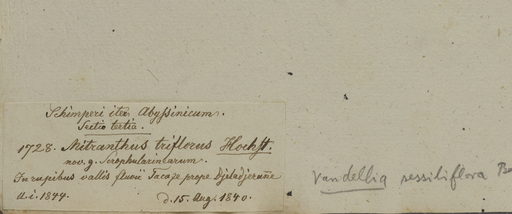 Schimperi iter Abyssinicum.
Sectio tertia.
1728. Mitranthus triflorus Hochst.
nov. g. Scrophularinearum.
In rupibus vallis fluvii Tacaze prope Djeladjeranne
u. i. 1844. d. 15. Aug. 1840.
Vandellia sessiliflora